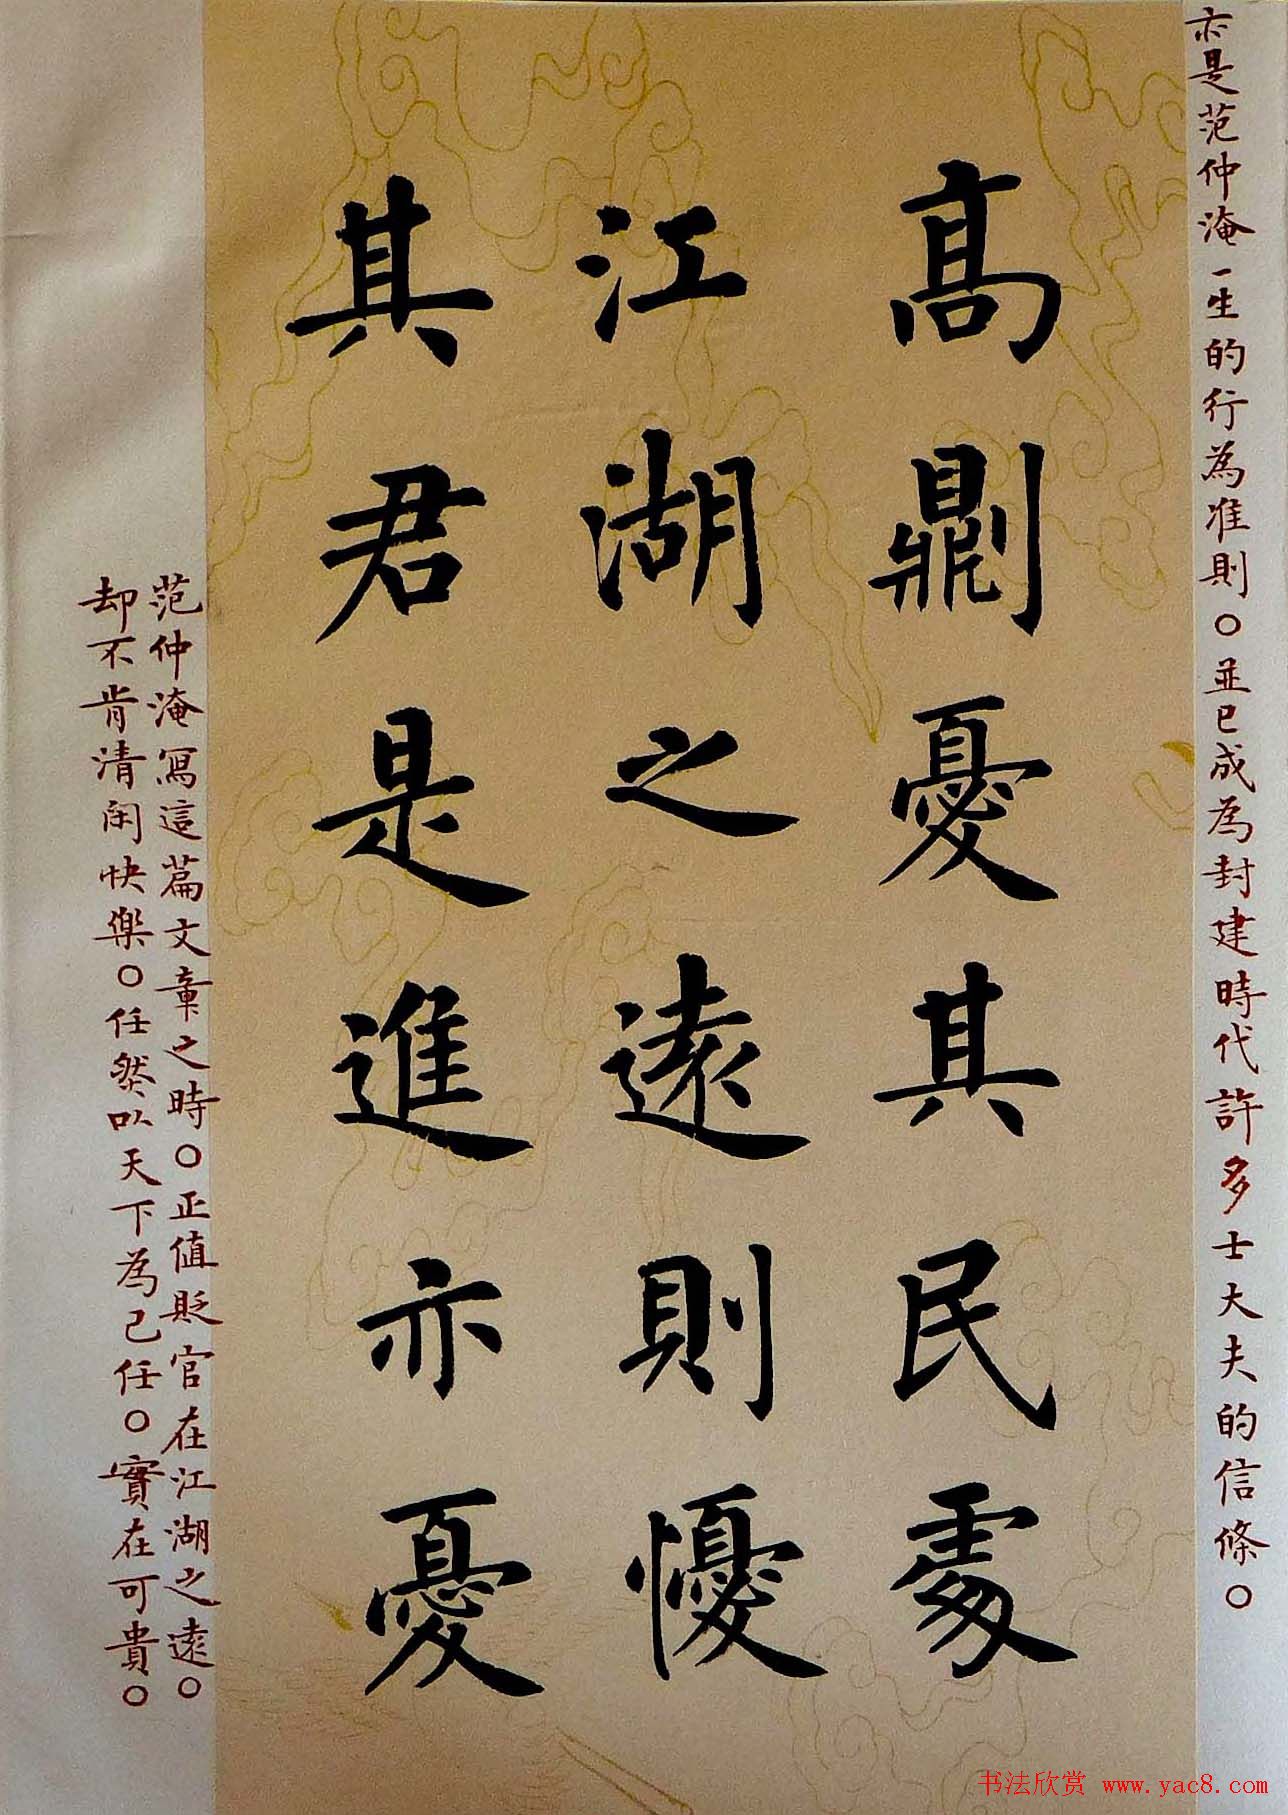 亦是范仲淹一生的行為准則。並已成為封建時代許多士大夫的信條。
高則憂其民處
江湖之遠則懮
其君是進亦憂
范仲淹寫這篇文章之時。正值貶官在江湖之遠。
却不肯清閑快樂。任然以天下為己任。實在可貴。
书法欣赏 www.yac8.com